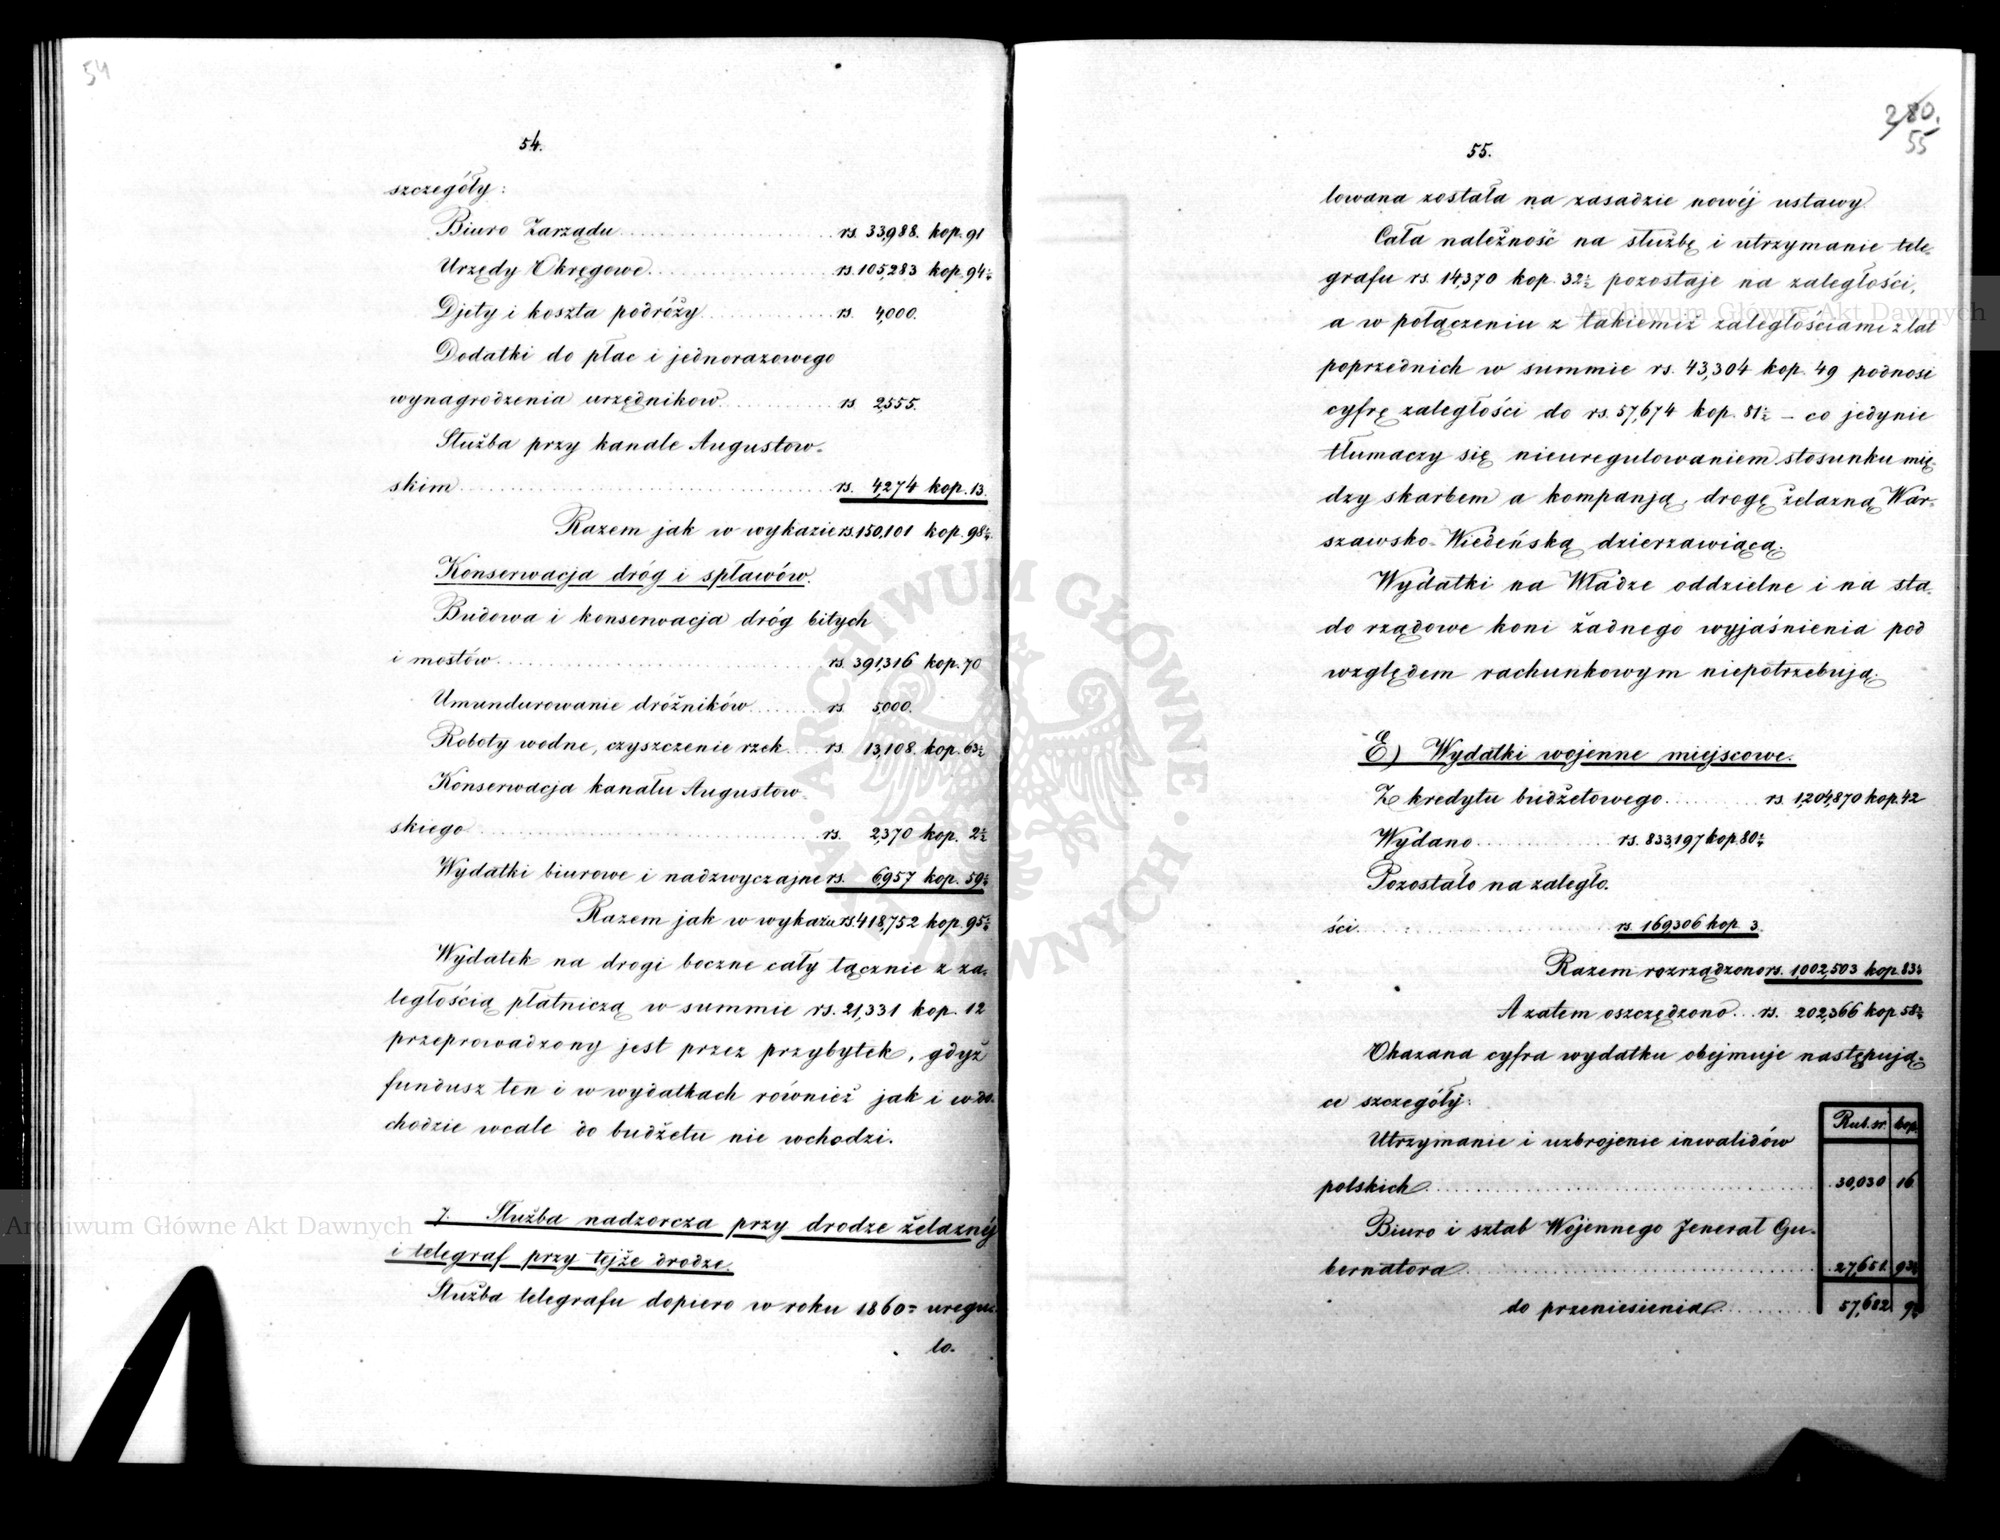 54
54.
szczegóły:
Biuro Zarządu rs. 33,988. kop. 91
Urzędy Okręgowe rs. 105,283 kop. 94½
Djety i koszta podróży rs. 4,000.
Dodatki do płac i jednorazowego
wynagrodzenia urzędnikow rs. 2,555.
Służba przy kanale Augustow-
skim rs. 4,274 kop. 13.
Razem jak w wykazie rs. 150,101 kop. 98½
Konserwacja dróg i spławów.
Budowa i konserwacja dróg bitych
i mostów rs. 391,316 kop. 70
Umundurowanie dróżników rs. 5,000.
Roboty wodne, czyszczenie rzek rs. 13,108. kop. 63½
Konserwacja kanału Augustow-
skiego rs. 2,370 kop. 2½
Wydatki biurowe i nadzwyczajne rs. 6,957 kop. 59½
Razem jak w wykazu rs. 418,752 kop. 95½
Wydatek na drogi boczne cały łącznie z za-
ległością płatniczą w summie rs. 21,331 kop. 12
przeprowadzony jest przez przybytek, gdyż
fundusz ten i w wydatkach również jak i w do-
chodzie wcale do budżetu nie wchodzi.
7. Służba nadzorcza przy drodze żelaznéj
i telegraf przy tejże drodze.
Służba telegrafu dopiero w roku 1860= uregu-
lo-
280.
55
55.
lowana została na zasadzie nowéj ustawy
Cała należność na służbę i utrzymanie tele-
grafu rs. 14,370 kop. 32½ pozostaje na zaległości,
a w połączeniu z takiemiż zaległościami z lat
poprzednich w summie rs. 43,304 kop. 49 podnosi
cyfrę zaległości do rs. 57,674 kop. 81½ – co jedynie
tłumaczy się nieuregulowaniem stosunku mię-
dzy skarbem a kompanją, drogę żelazną War-
szawsko-Wiedeńską dzierzawiącą.
Wydatki na Władze oddzielne i na sta-
do rządowe koni żadnego wyjaśnienia pod
względem rachunkowym niepotrzebują.
E) Wydatki wojenne miejscowe.
Z kredytu budżetowego rs. 1,204,870 kop. 42
Wydano rs. 833,197 kop. 80½
Pozostało na zaległo-
ści rs. 169,306 kop. 3.
Razem rozrządzono rs. 1,002,503 kop. 83½
A zatem oszczędzono rs. 202,366 kop. 58½
Okazana cyfra wydatku obejmuje następują-
ce szczegóły:
Rub. sr. kop.
Utrzymanie i uzbrojenie inwalidów
polskich 30,030 16
Biuro i sztab Wojennego Jenerał Gu-
bernatora 27,651. 93½
do przeniesienia 57,682. 9½
Archiwum Główne Akt Dawnych
Archiwum Główne Akt Dawnych
ARCHIWUM GŁÓWNE AKT DAWNYCH